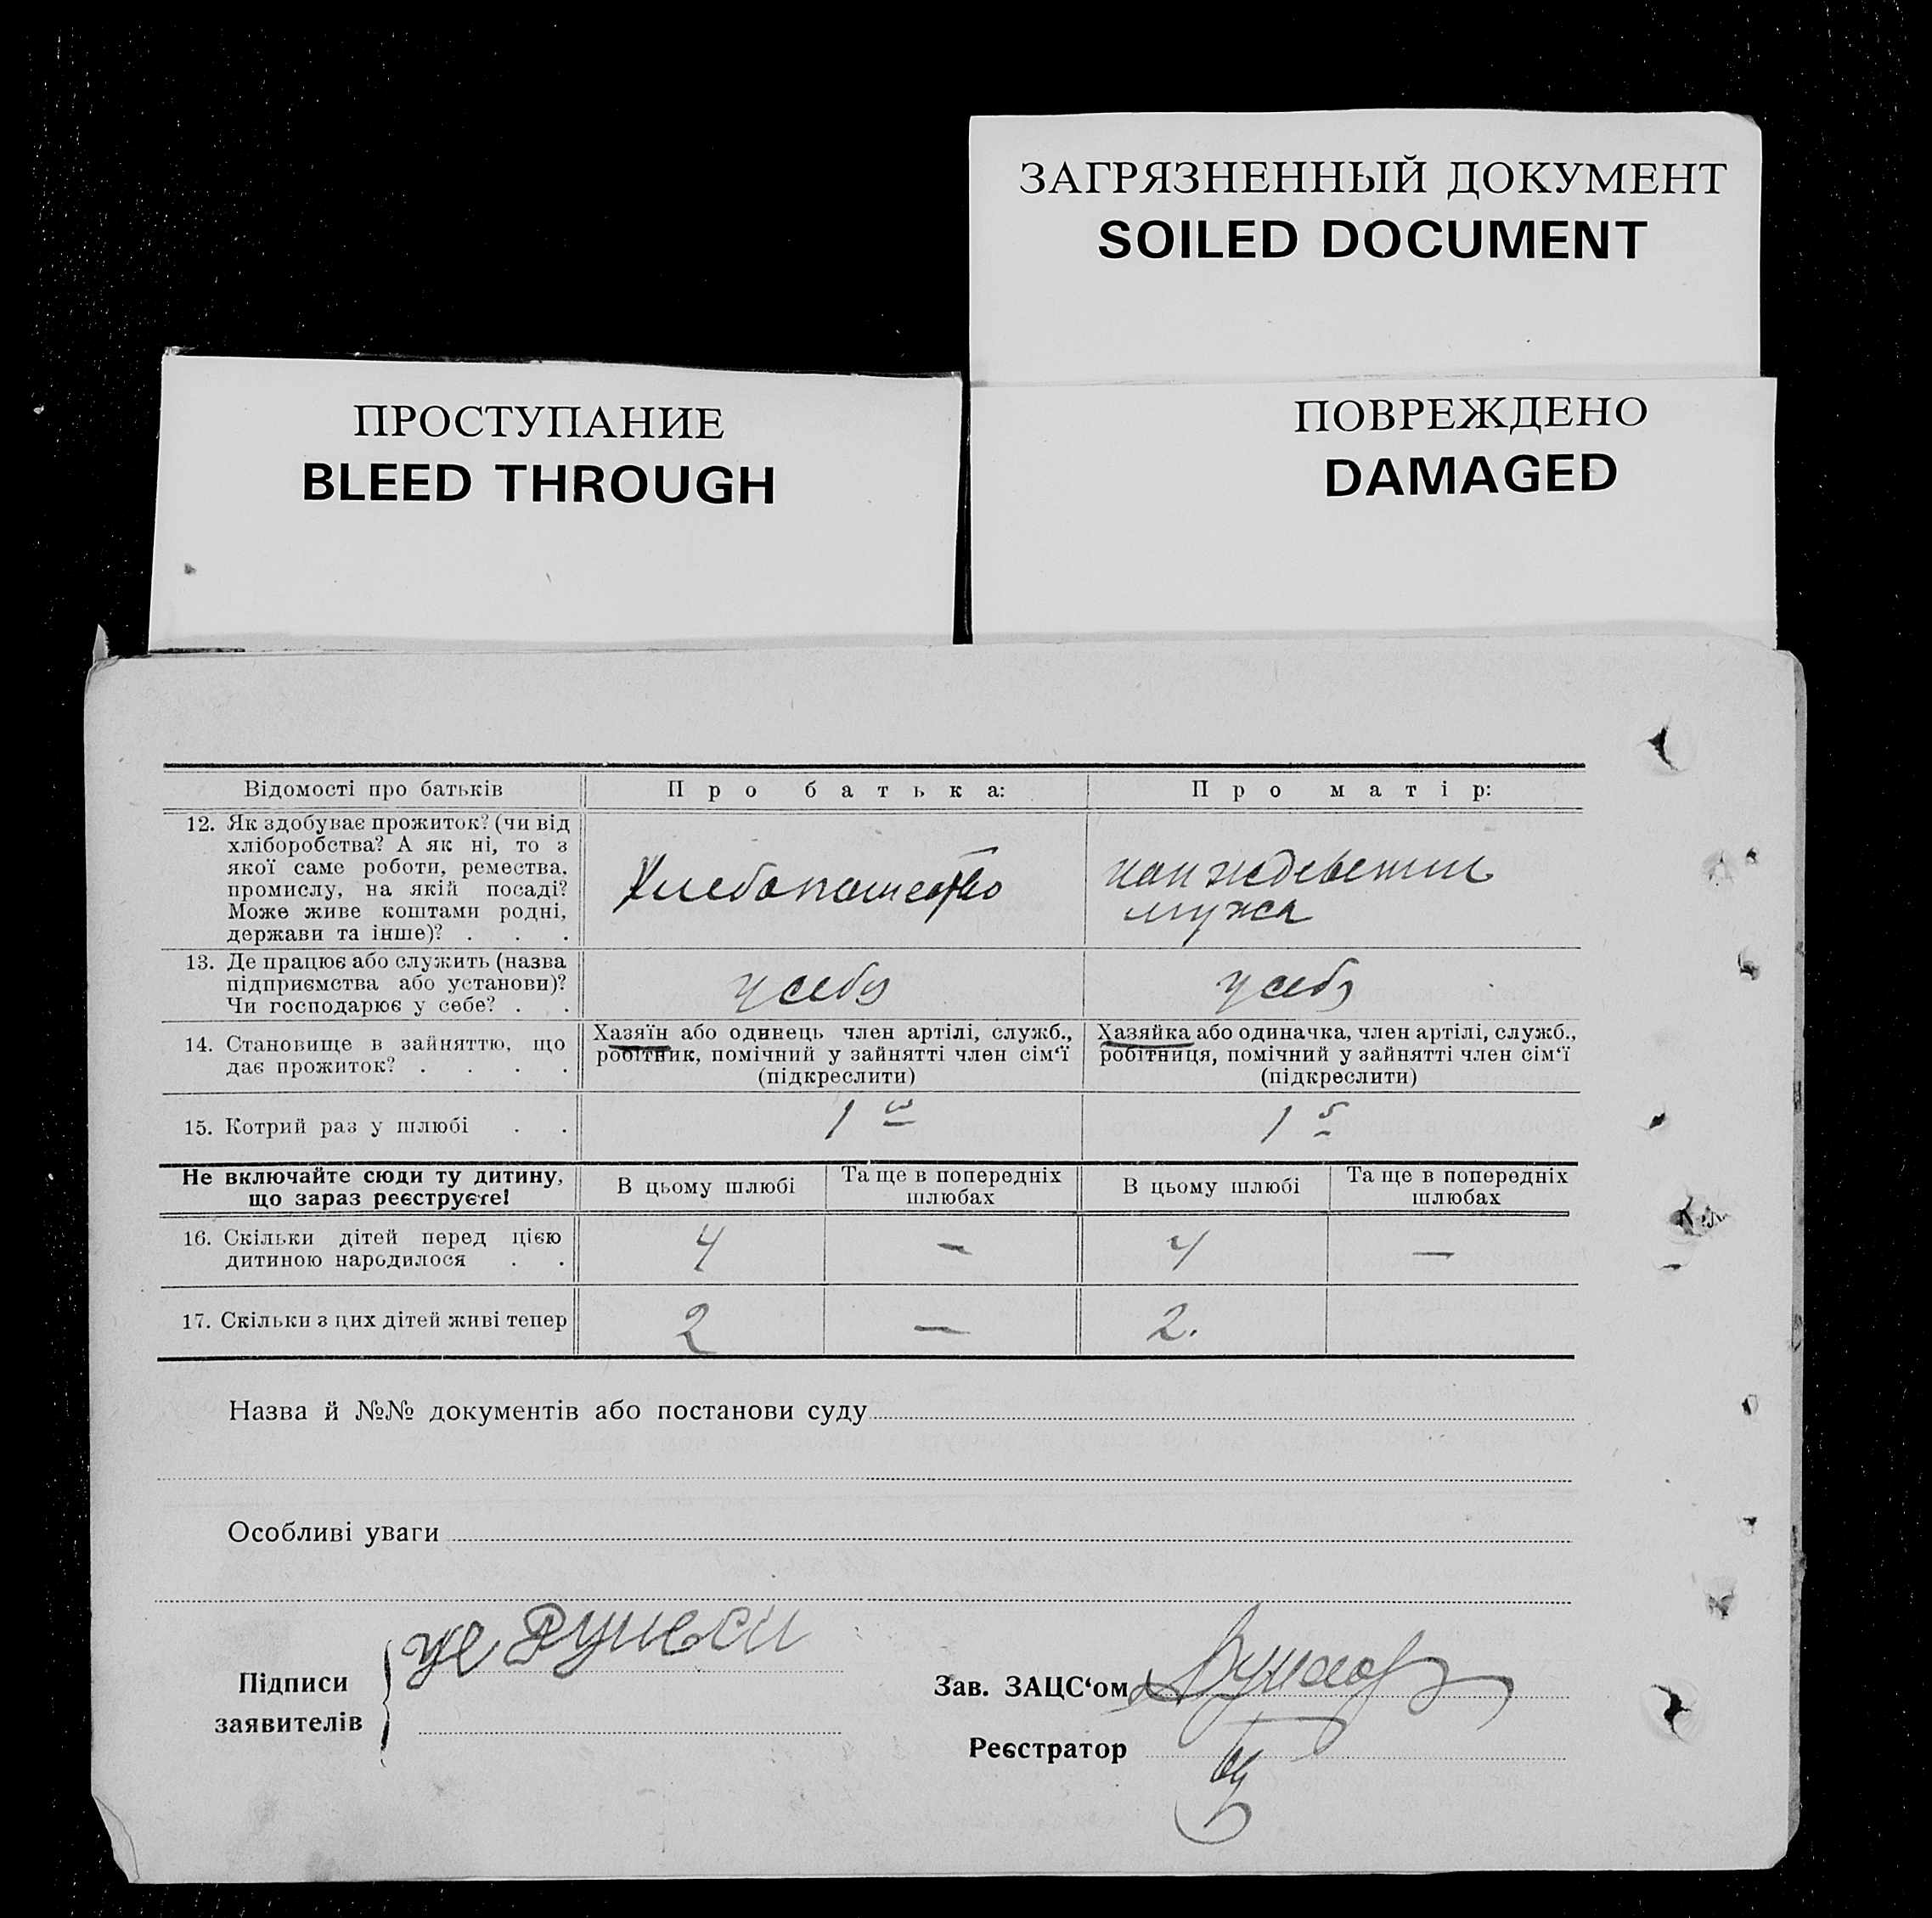 ЗАГРЯЗНЕННЫЙ ДОКУМЕНТ
SOILED DOCUMENT
ПРОСТУПАНИЕ
BLEED THROUGH
ПОВРЕЖДЕНО
DAMAGED
Відомості про батьків
Про батька:
Про матір:
12. Як здобуває прожиток? (чи від
хліборобства? А як ні, то з
якої саме роботи, ремества,
промислу, на якій посаді?
Може живе коштами родні,
держави та інше)? . . .
Хлебопашество
на иждевении
мужа
13. Де працює або служить (назва
підприємства або установи)?
Чи господарює у себе? . .
у себя
у себя
14. Становище в зайняттю, що
дає прожиток? . . . .
Хазяїн або одинець член артілі, служб.,
робітник, помічний у зайнятті член сім‘ї
(підкреслити)
Хазяйка або одиначка, член артілі, служб.,
робітниця, помічний у зайнятті член сім‘ї
(підкреслити)
15. Котрий раз у шлюбі . .
1
1
Не включайте сюди ту дитину,
що зараз реєструєте!
В цьому шлюбі
Та ще в попередніх
шлюбах
В цьому шлюбі
Та ще в попередніх
шлюбах
16. Скільки дітей перед цією
дитиною народилося . .
4
—
4
—
17. Скільки з цих дітей живі тепер
2
—
2.
Назва й №№ документів або постанови суду
Особливі уваги
Підписи
заявителів
Зав. ЗАЦС‘ом
Реєстратор